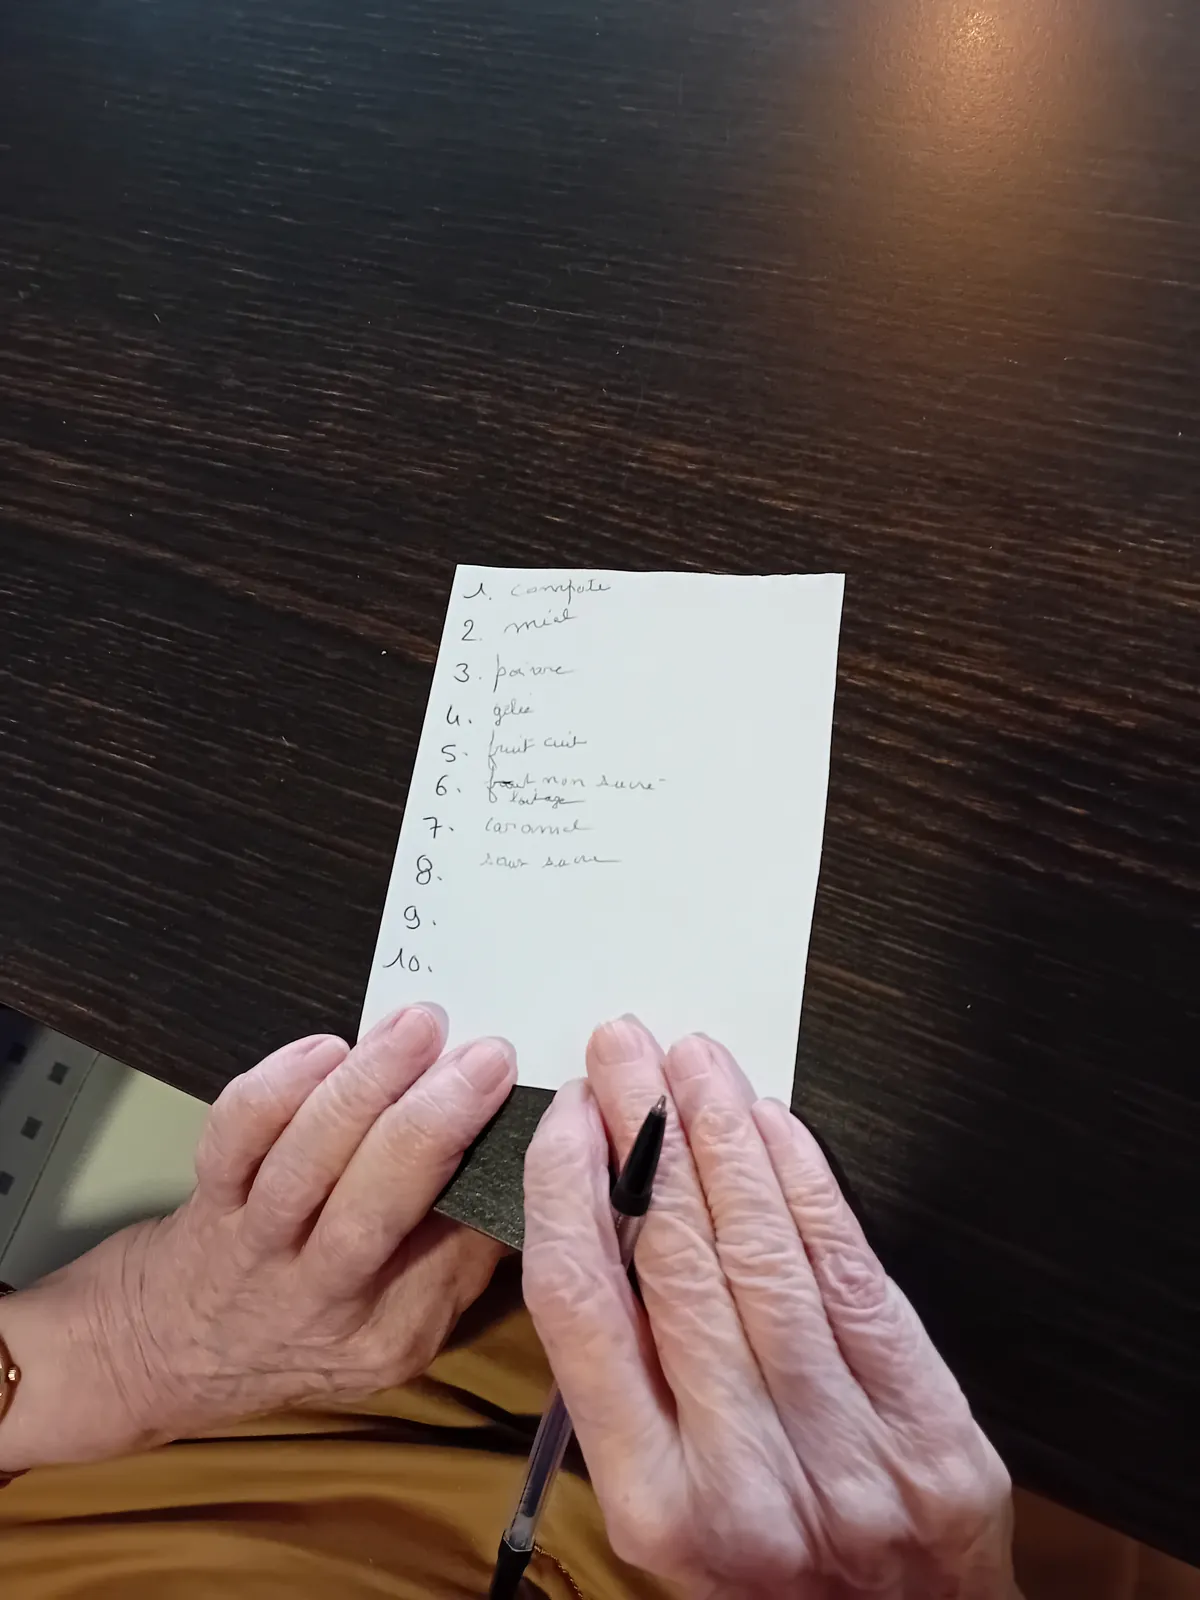 1. compote
2. miel
3. poivre
4. gelée
5. fruit cuit
6. non sucré
7. caramel
8. sucre
9.
10.